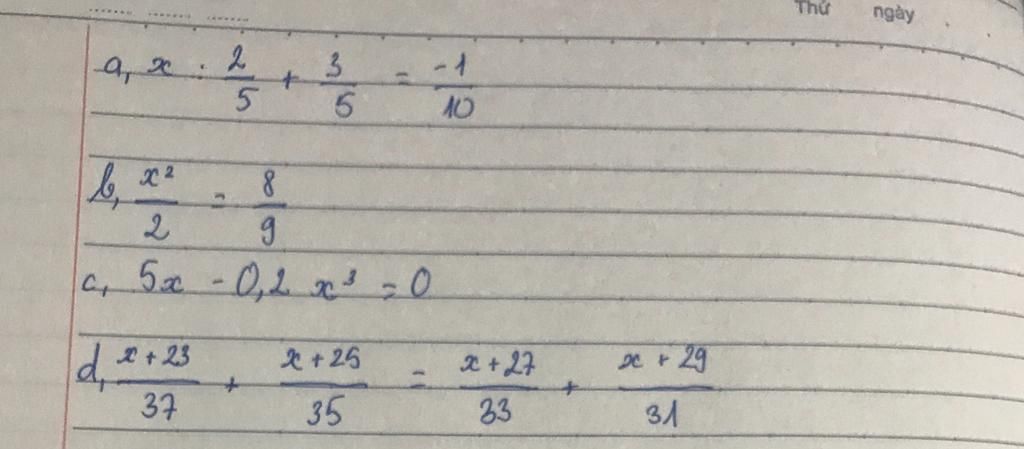 Thứ ngày
a, x : 2/5 + 3/5 = -1/10
b, x²/2 = 8/9
c, 5x - 0,2 x³ = 0
d, x+23/37 + x+25/35 = x+27/33 + x+29/31